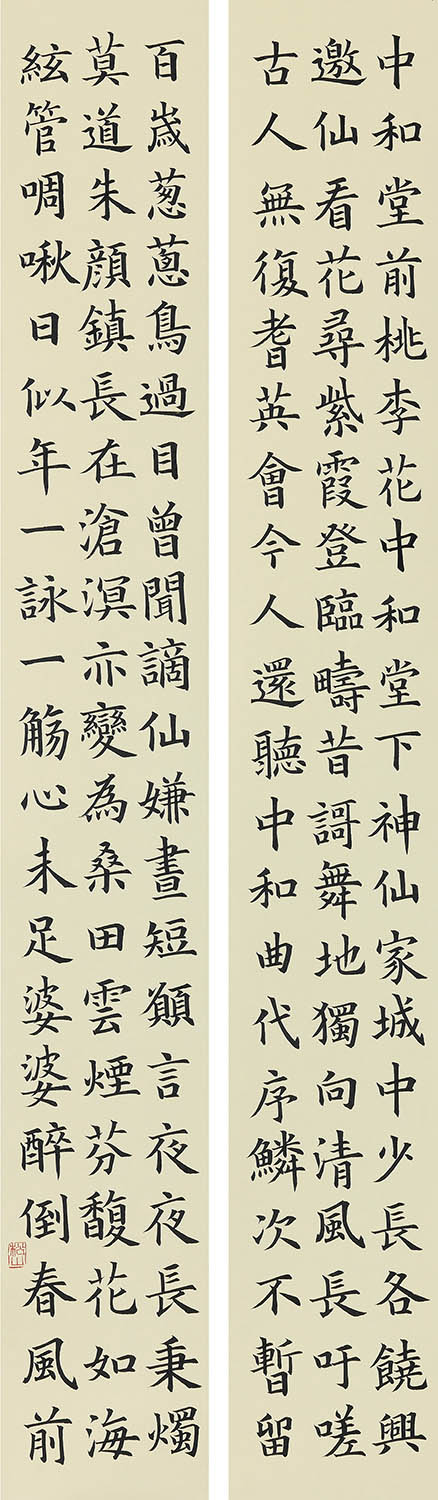 中和堂前桃李花中和堂下神仙家城中少長各饒興
邀仙看花尋紫霞登臨疇昔謌舞地獨向清風長吁嗟
古人無復耆英會今人還聽中和曲代序鱗次不暫留
百歲葱蔥鳥過目曾聞謫仙嫌晝短願言夜夜長秉燭
莫道朱顏鎮長在滄溟亦變為桑田雲煙芬馥花如海
絃管啁啾日似年一詠一觴心未足婆婆醉倒春風前